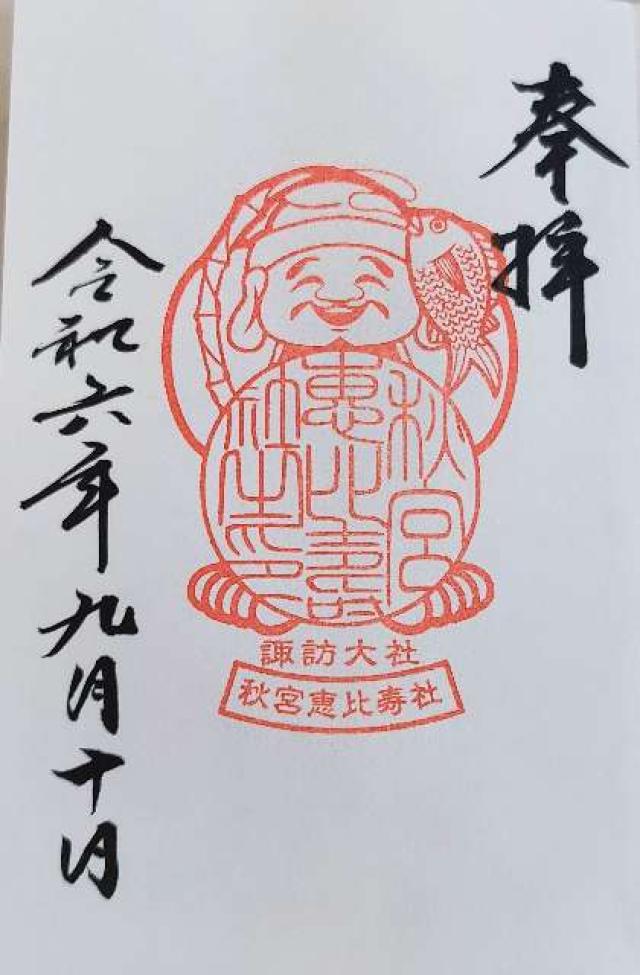 奉拝
秋宮
恵比寿
社之印
諏訪大社
秋宮恵比寿社
令和六年九月十日